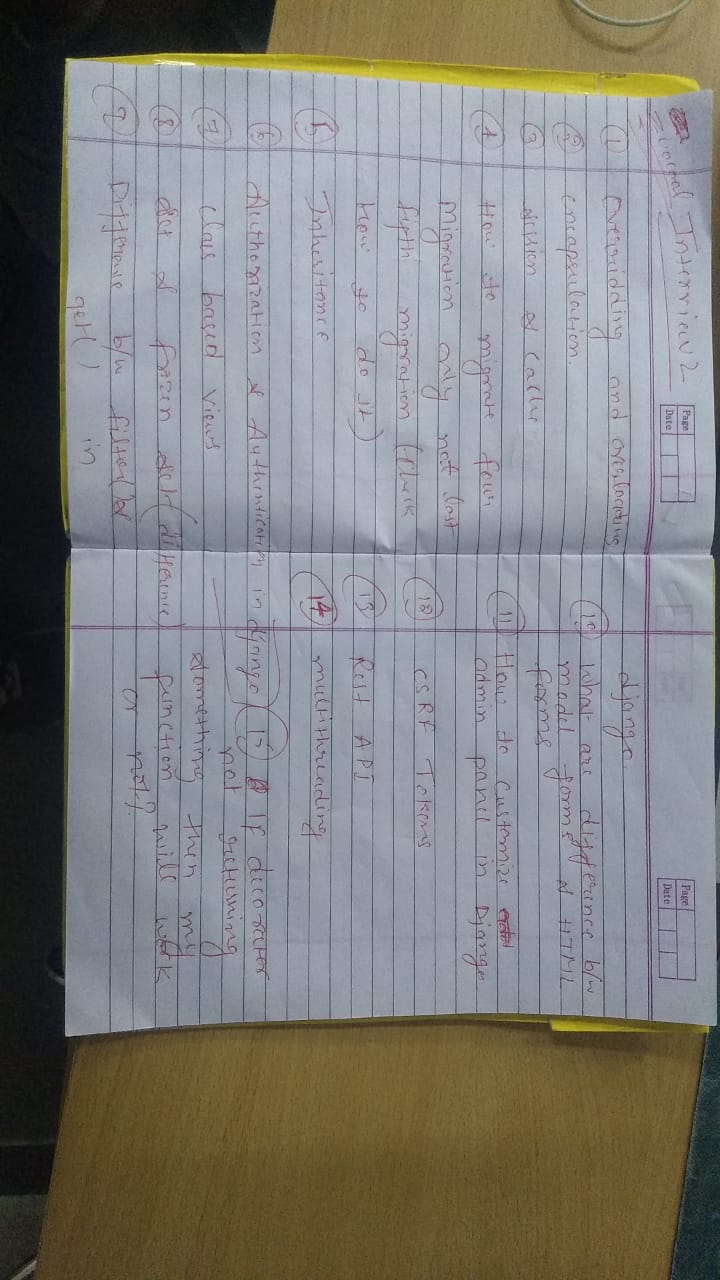 Internal Interview 2
Page
Date
① Overridding and overloading
② encapsulation.
③ session & cache
④ How to migrate four
migration only not last
fifth migration (Check
How to do it)
⑤ Inheritance
⑥ Authorization & Authentication in django
⑦ Class based views
⑧ Set & frozen set (difference)
⑨ Difference b/w filter() &
get() in
Page
Date
django.
⑩ What are difference b/w
model forms & HTML
forms
⑪ How to customize
admin panel in Django
⑫ CSRF Tokens
⑬ Rest API
⑭ multithreading
⑮ If decorator
not returning
something then my
function will work
or not?